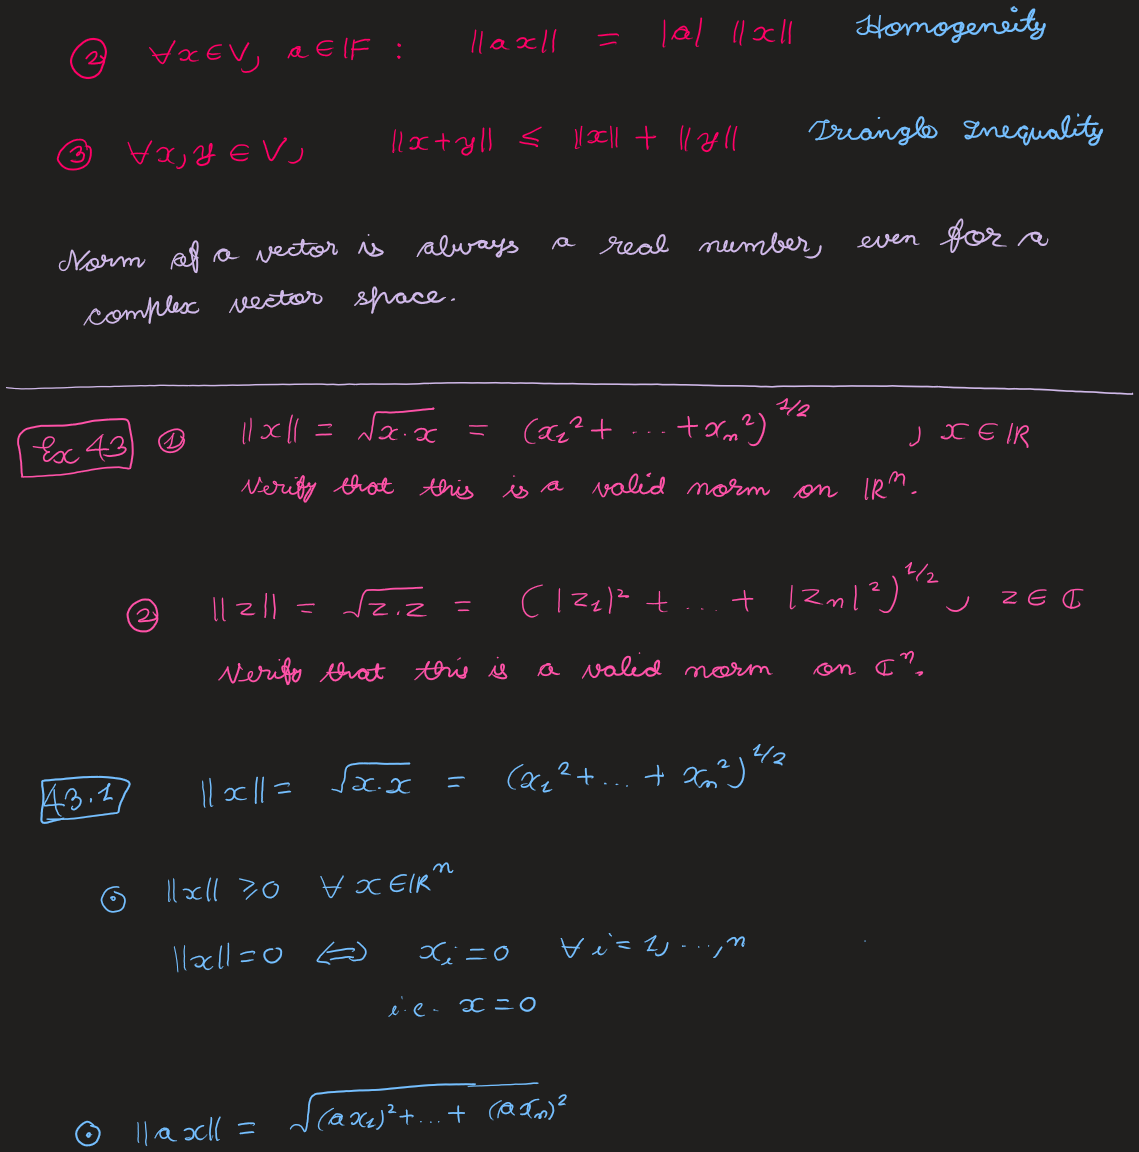 ② ∀x∈V, a∈𝔽 : ||ax|| = |a| ||x|| Homogeneity
③ ∀x,y ∈ V, ||x+y|| ≤ ||x|| + ||y|| Triangle Inequality
Norm of a vector is always a real number, even for a
complex vector space.
Ex 43 ① ||x|| = √(x·x) = (x₁² + ... + xₙ²)^1/2 , x ∈ ℝ
Verify that this is a valid norm on ℝⁿ.
② ||z|| = √(z·z) = (|z₁|² + ... + |zₙ|²)^1/2 , z ∈ ℂ
Verify that this is a valid norm on ℂⁿ.
43.1 ||x|| = √(x·x) = (x₁² + ... + xₙ²)^1/2
⊙ ||x|| ≥ 0 ∀ x ∈ ℝⁿ
||x|| = 0 ⇔ xᵢ = 0 ∀ i = 1, ..., n
i.e. x = 0
⊙ ||ax|| = √((ax₁)² + ... + (axₙ)²)